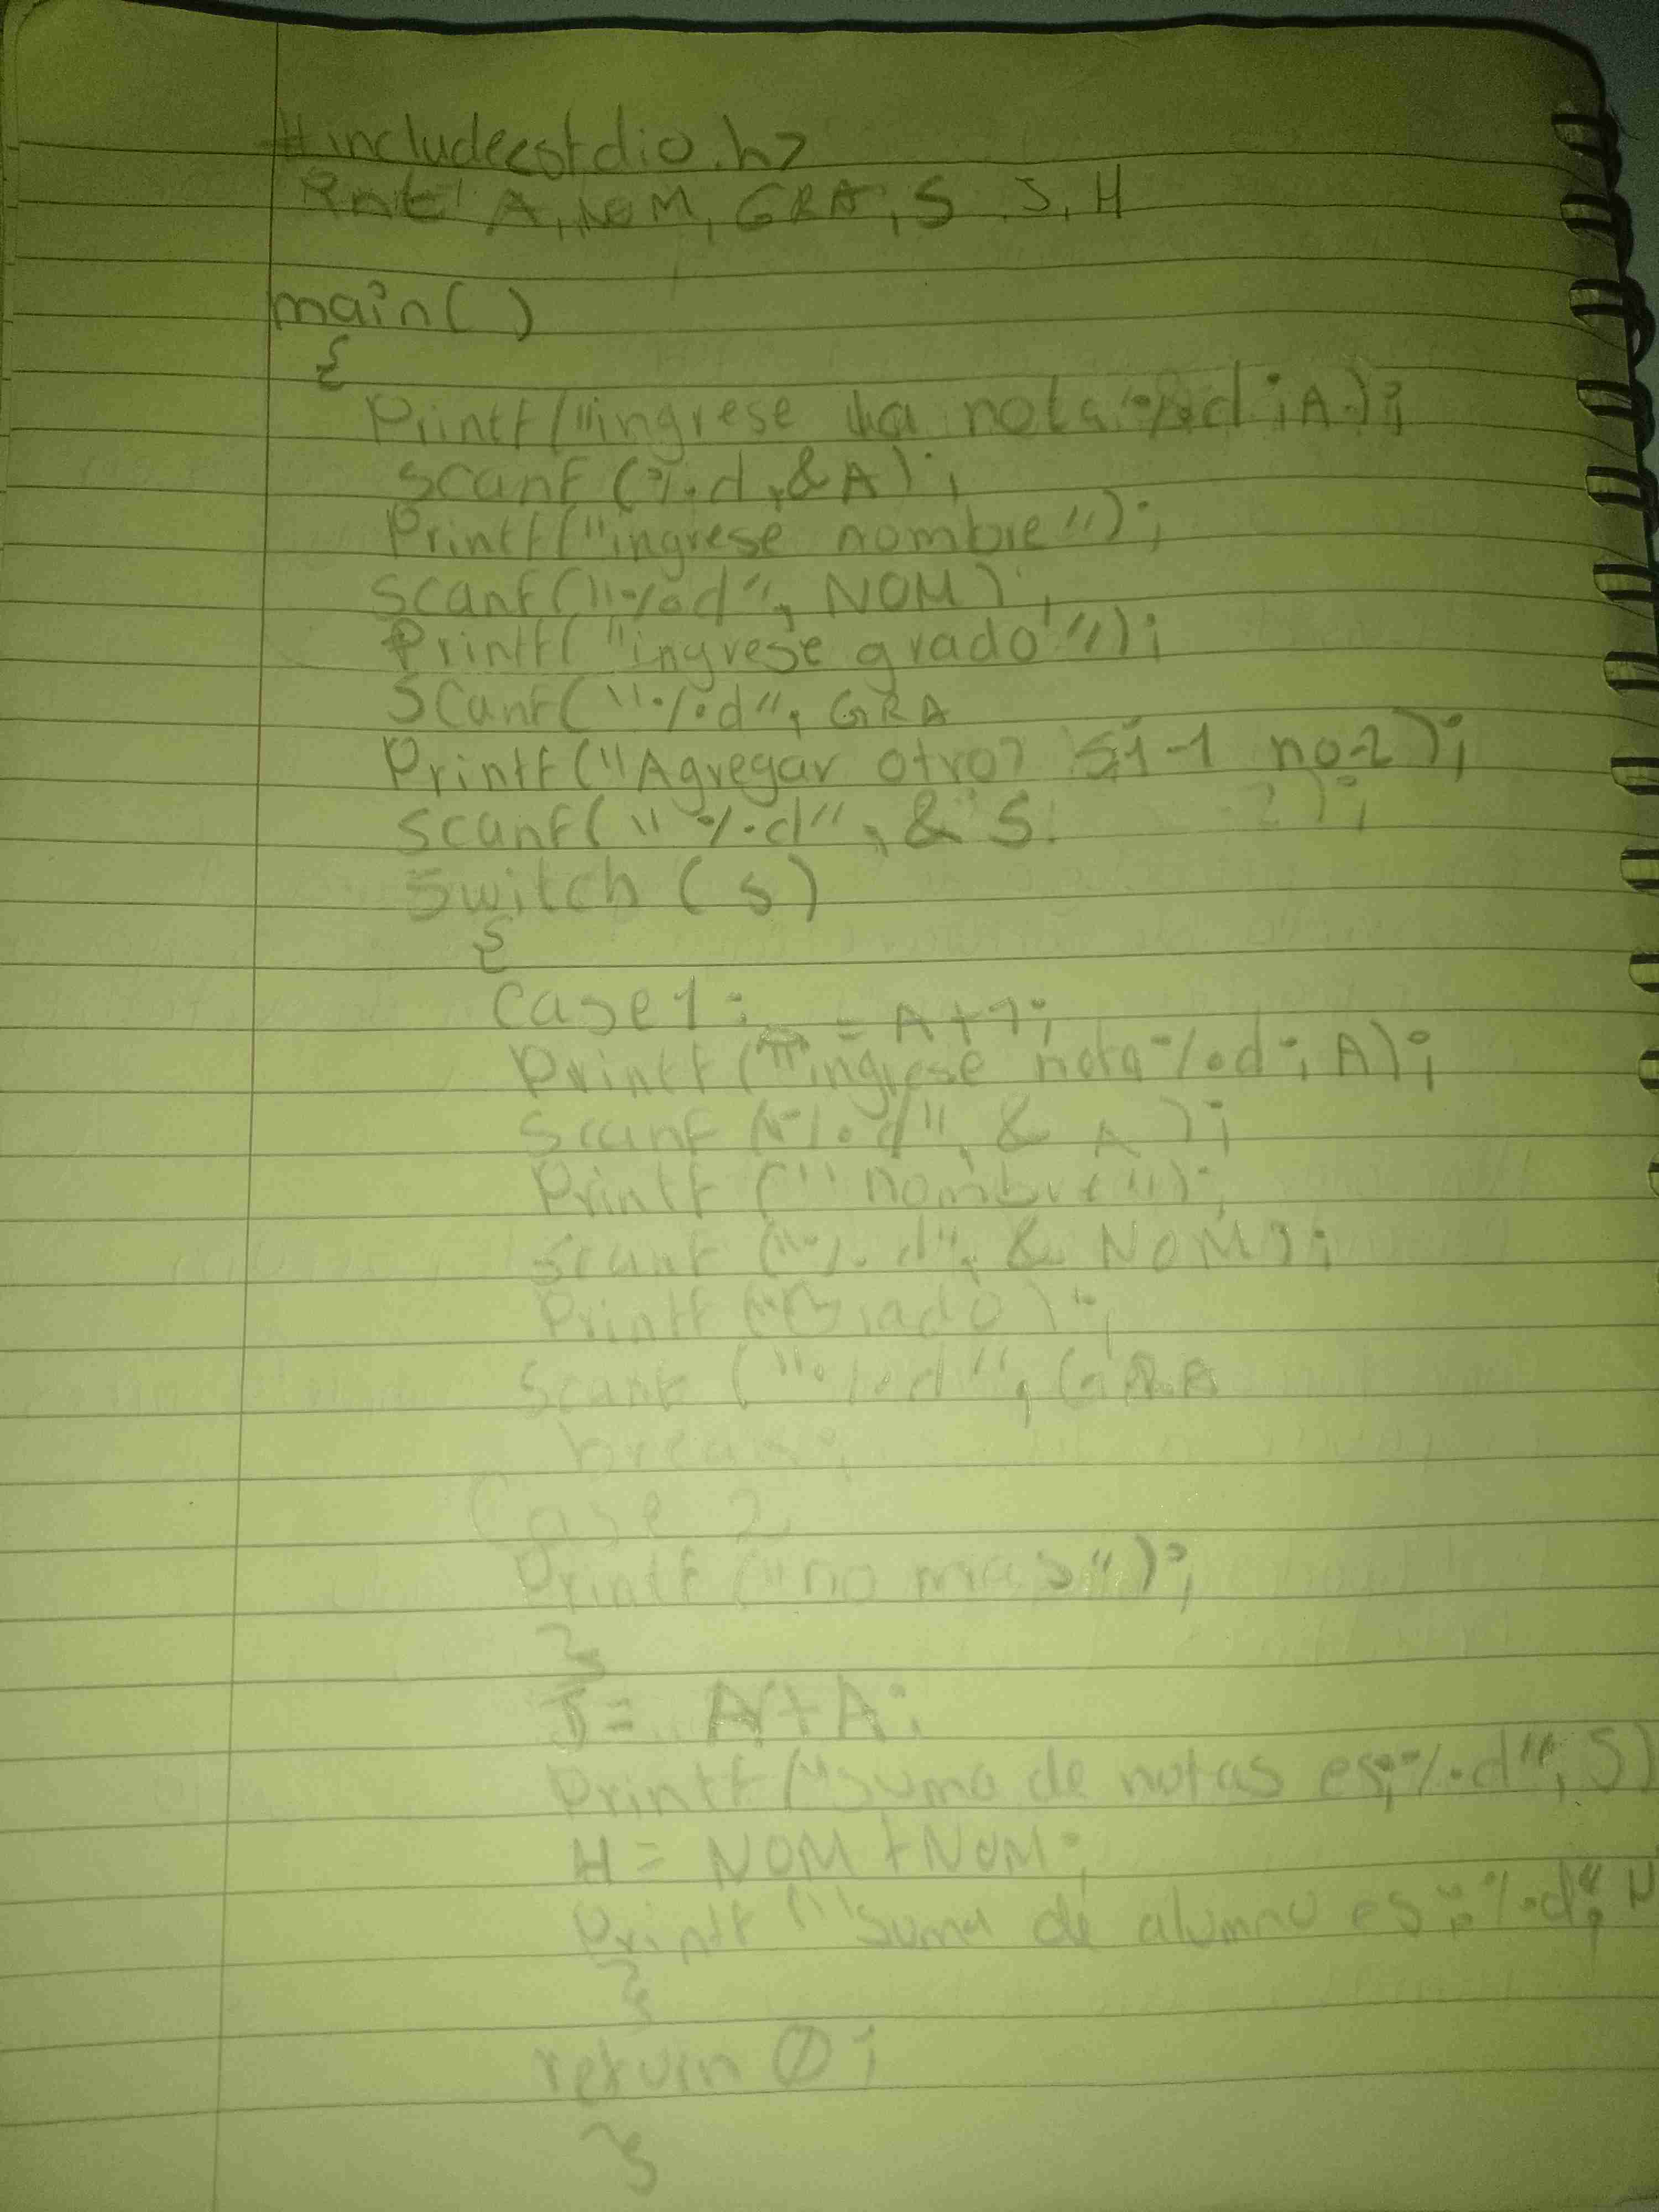 #include<stdio.h>
int A, NOM, GRA, S, J, H
main( )
{
Printf("ingrese la nota %d ; A);
Scanf (%d, & A);
Printf("ingrese nombre");
Scanf("%d", NOM);
Printf("ingrese grado");
Scanf("%d", GRA
Printf("Agregar otro? Si-1 no-2);
Scanf("%d", & S
-2);
Switch (s)
{
Case 1:
= A+1;
Printf("ingrese nota %d ; A);
Scanf ("%d", & A);
Printf ("nombre");
Scanf ("%d", & NOM);
Printf (
Scanf ("%d", GRA
break;
Case 2
Printf ("no mas");
}
J = A + A;
Printf ("Suma de notas es; %d", S)
H = NOM + NOM;
Printf ("Suma de alumno es: %d", H
}
return 0;
}